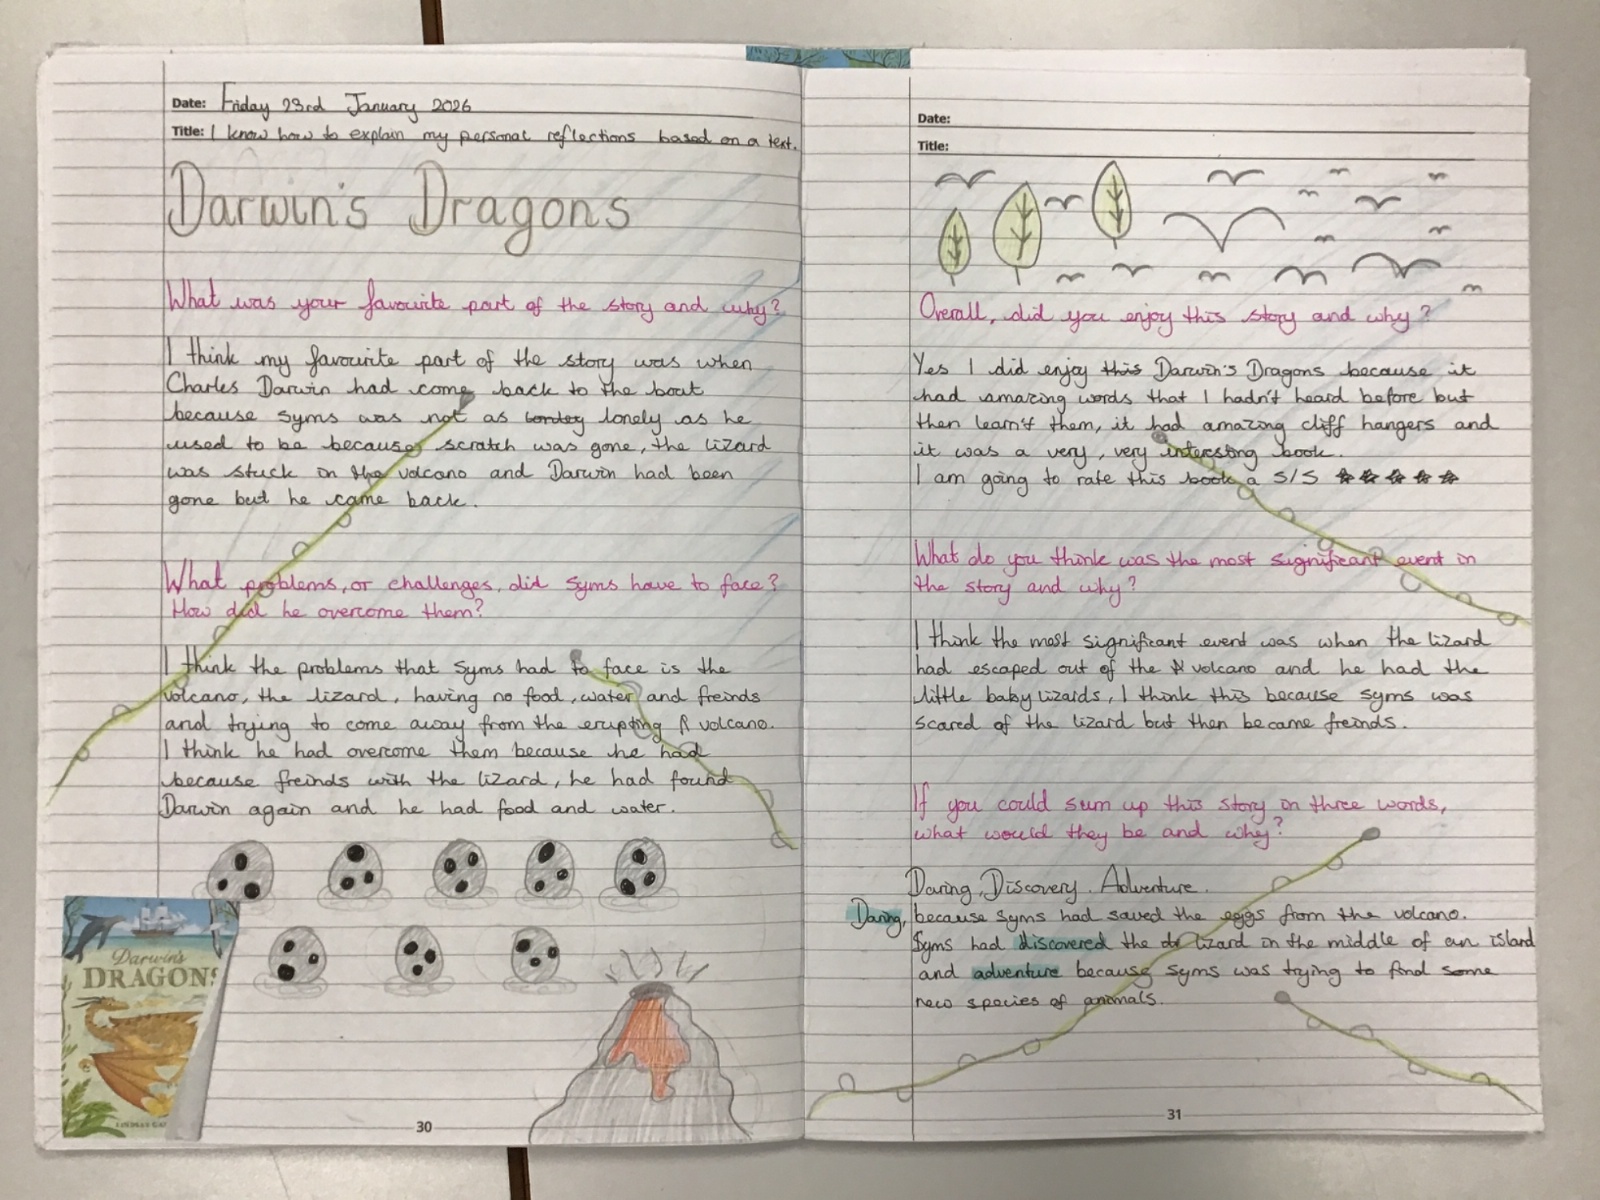 Date: Friday 23rd January 2026
Title: I know how to explain my personal reflections based on a text.
Darwin's Dragons
What was your favourite part of the story and why?
I think my favourite part of the story was when
Charles Darwin had come back to the boat
because Syms was not as lonely as he
used to be because scratch was gone, the lizard
was stuck in the volcano and Darwin had been
gone but he came back.
What problems, or challenges, did Syms have to face?
How did he overcome them?
I think the problems that Syms had to face is the
volcano, the lizard, having no food, water and freinds
and trying to come away from the erupting volcano.
I think he had overcome them because he had
because freinds with the lizard, he had found
Darwin again and he had food and water.
Darwin's
DRAGONS
30
Date:
Title:
Overall, did you enjoy this story and why?
Yes I did enjoy this Darwin's Dragons because it
had amazing words that I hadn't heard before but
then learn't them, it had amazing cliff hangers and
it was a very, very intersting book.
I am going to rate this book a 5/5
What do you think was the most significant event in
the story and why?
I think the most significant event was when the lizard
had escaped out of the volcano and he had the
little baby lizards, I think this because Syms was
scared of the lizard but then became freinds.
If you could sum up this story in three words,
what would they be and why?
Daring, Discovery. Adventure.
Daring, because Syms had saved the eggs from the volcano.
Syms had discovered the lizard in the middle of an island
and adventure because Syms was trying to find some
new species of animals.
31